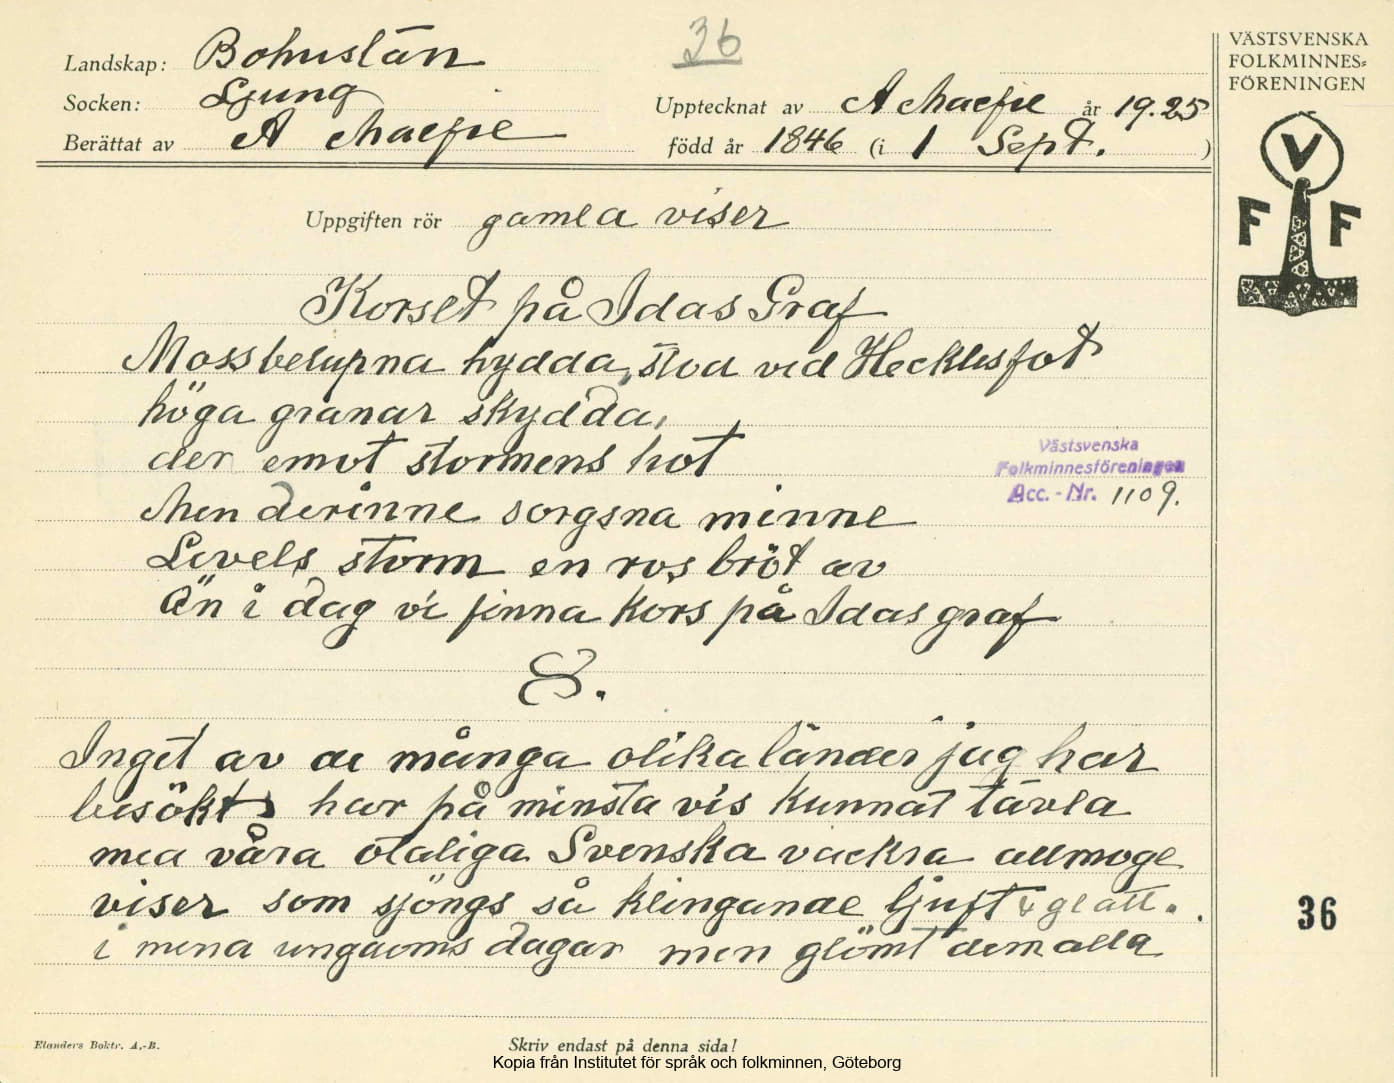 36
Landskap: Bohuslän
Socken: Ljung
Berättat av A Macfie
Upptecknat av A Macfie år 19.25
född år 1846 (i 1 Sept. )
VÄSTSVENSKA
FOLKMINNES-
FÖRENINGEN
V
F F
Uppgiften rör gamla viser
Korset på Idas Graf
Mossbelupna hydda, stod vid Hecklusfot
höga granar skydda,
der emot stormens hot
Men derinne sorgsna minne
Levels storm en ros bröt av
Än i dag vi finna Kors på Idas graf
Västsvenska
Folkminnesföreningen
Acc. - Nr. 1109.
Inget av de många olika länder jag har
besökt har på minsta vis kunnat tävla
med våra otaliga Svenska vackra allmoge
viser som sjöngs så klingande ljuft & glatt.
i mina ungdoms dagar men glömt dem alla
36
Elanders Boktr. A.-B.
Skriv endast på denna sida!
Kopia från Institutet för språk och folkminnen, Göteborg